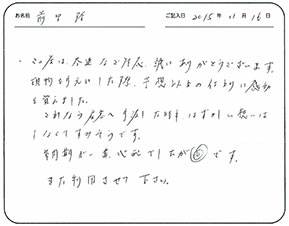 お名前 前田 ご記入日 2015年11月16日
・この度は、永速なご対応、誠にありがとうございます。
現物を見ました際、予想以上の仕上りに感動
を覚えました。
これなら店へ手渡した時は はずかしい思いは
しなくてすみそうです。
納期が一番心配でしたが◎です。
また利用させて下さい。